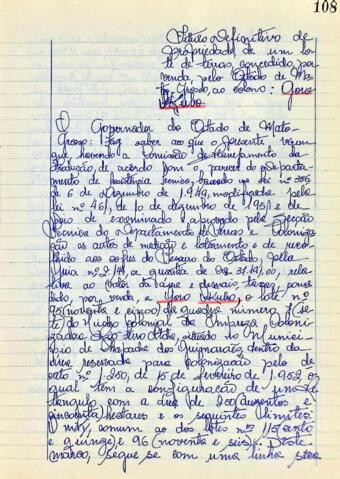 108
Título Definitivo de
propriedade de um lo-
te de terras, concedido, por
venda, pelo Estado de Ma-
to Grosso, ao colono: Goro
O Governador do Estado de Mato-
Grosso: Faz saber ao que o presente virem
que, havendo a Comissão de Planejamento da
Produção, de acordo com o parecer do Departa-
mento de Assistência
de 6 de Dezembro de 1949, modificada pela
lei nº 461, de 10 de dezembro de 1951 e de-
pois de examinado e aprovado pela Secção
Técnica do Departamento de Terras e Coloniza-
ção os autos de medição e loteamento e de reco-
lhido aos cofres do Tesouro do Estado, pela
Guia nº a quantia de
ao valor da e demais, taxas, conce-
dido, por venda, a Goro o lote nº
95 (noventa e cinco) da quadra número 7 (se-
te) do Núcleo colonial da Empreza Coloni-
zadora situado no Munici-
pio de Chapada dos Guimarães, dentro da
área reservada para colonização pelo de-
creto nº 1.250, de 15 de fevereiro de 1952, o
qual têm a configuração de um re-
tângulo com a área de 250 (duzentos e
cincoenta) hectares e os seguintes limites:
O comum ao dos lotes nºs 115 (cento
e quinze) e 96 (noventa e seis). Dêste
marco, segue-se com uma linha